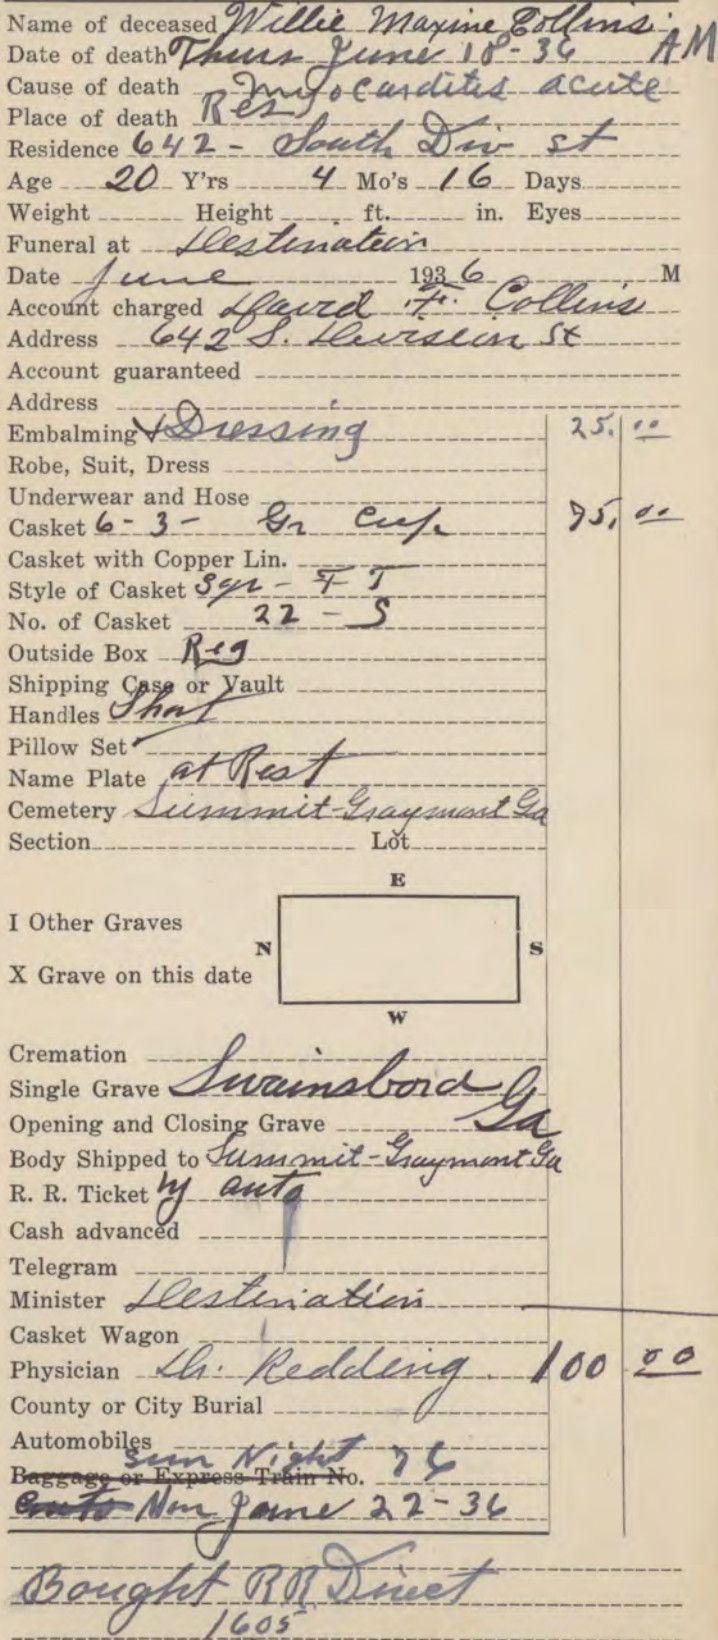 Name of deceased Willie Maxine Collins
Date of death Thurs June 18-36 AM
Cause of death Myocardites acute
Place of death Res
Residence 642 - South Div st
Age 20 Y'rs 4 Mo's 16 Days
Weight Height ft. in. Eyes
Funeral at Destination
Date June 1936 M
Account charged David F. Collins
Address 642 S. Division St
Account guaranteed
Address
Embalming & Dressing 25.00
Robe, Suit, Dress
Underwear and Hose
Casket 6-3- Gr Crep 75.00
Casket with Copper Lin.
Style of Casket Sqr - F T
No. of Casket 22 - S
Outside Box Reg
Shipping Case or Vault
Handles Short
Pillow Set
Name Plate at Rest
Cemetery Summit-Graymont Ga
Section Lot
E
I Other Graves
N S
X Grave on this date
W
Cremation
Single Grave Swainsboro
Opening and Closing Grave Ga
Body Shipped to Summit-Graymont Ga
R. R. Ticket by auto
Cash advanced
Telegram
Minister Destination
Casket Wagon
Physician Dr. Redding. 100 00
County or City Burial
Automobiles
Sun Night 76
Baggage or Express Train No.
Mon June 22-36
Bought RR Direct
1605